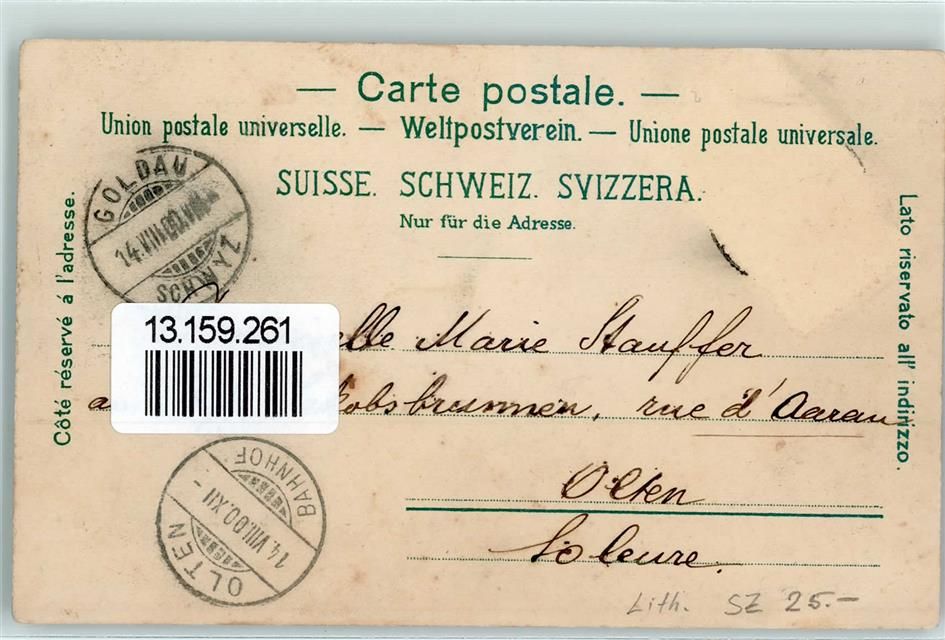 — Carte postale. —
Union postale universelle. — Weltpostverein. — Unione postale universale.
SUISSE. SCHWEIZ. SVIZZERA.
Nur für die Adresse.
Côté réservé á l'adresse.
Lato riservato all' indirizzo.
GOLDAU
14.VIII.00
13.159.261
elle Marie Stauffer
kobsbrunnen, rue d'Aarau
Olten
Soleure.
BAHNHOF
14.VIII.00.XII -
OLTEN
Lith. SZ 25.-